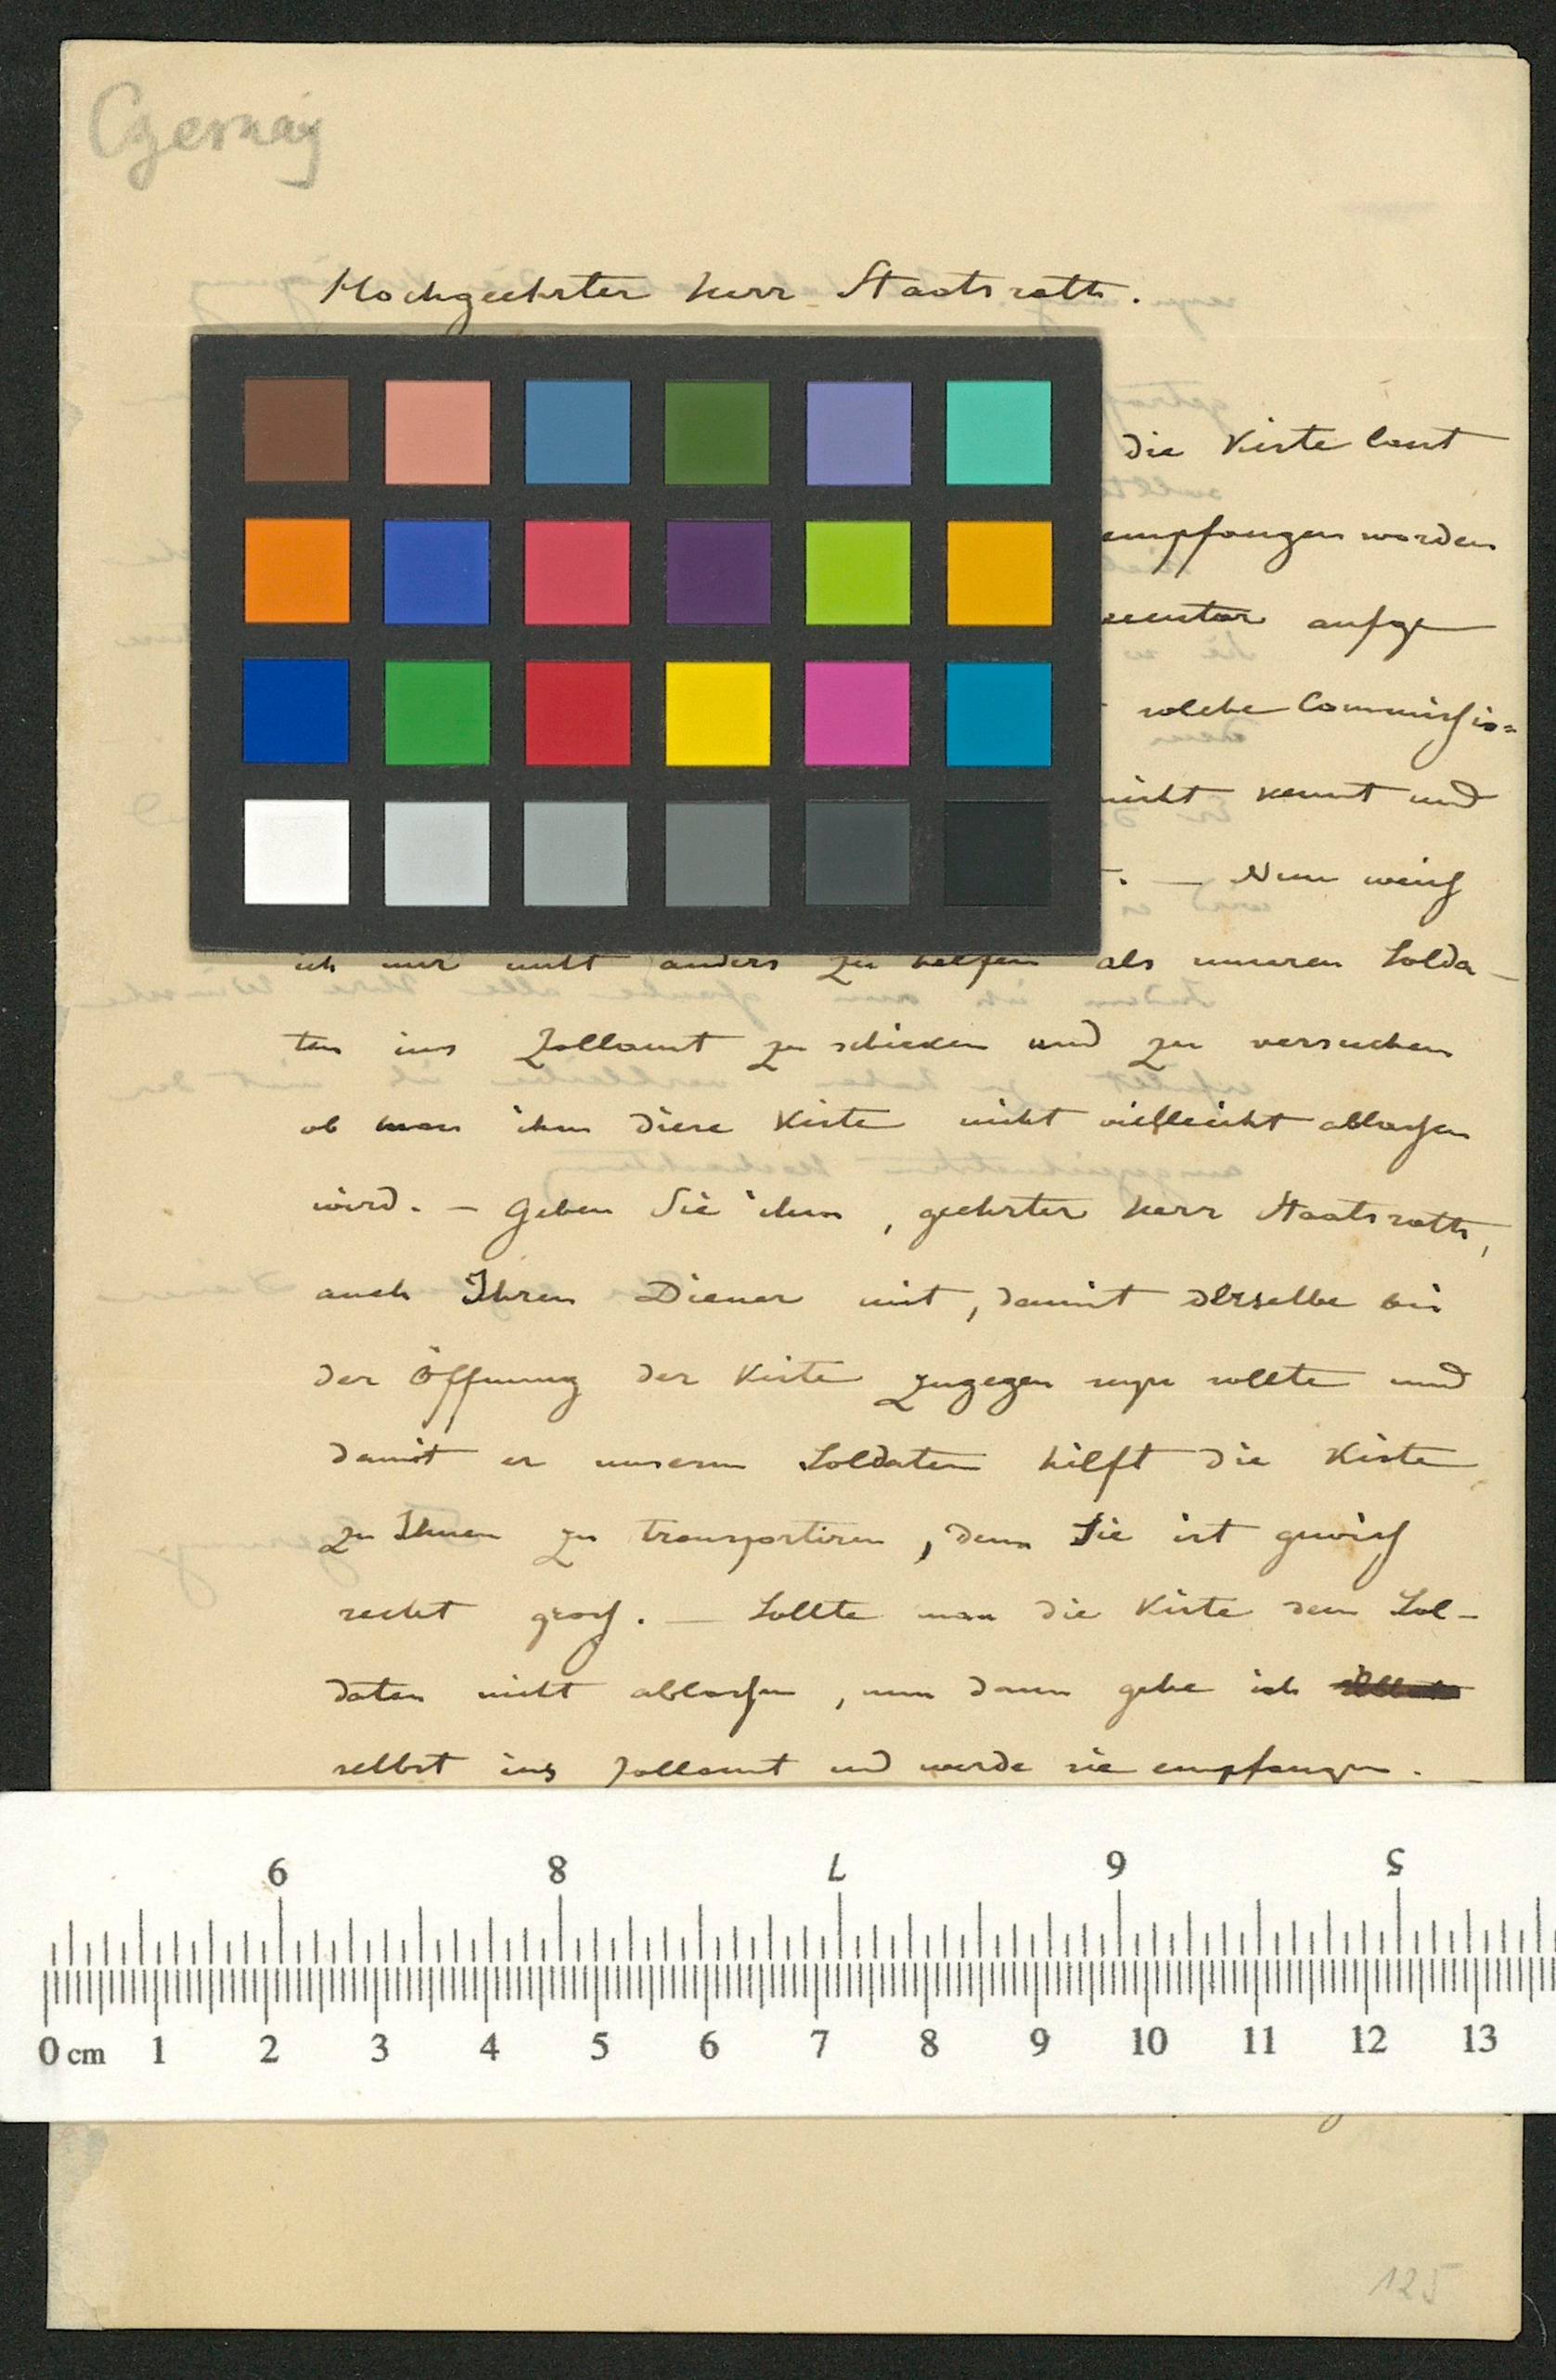 Czernay
Hochgeehrter Herr Staatsrath.
die Kiste laut
empfangen worden
aufge
solche Commissio=
nicht kennt und
. — Nun weiß
ich mir nicht anders zu helfen als unseren Solda-
ten ins Zollamt zu schicken und zu versuchen
ob man ihm diese Kiste nicht vielleicht ablassen
wird. — Geben Sie ihm, geehrter Herr Staatsrath,
auch Ihren Diener mit, damit derselbe bei
der Öffnung der Kiste zugegen seyn sollte und
damit er unserm Soldaten hilft die Kiste
zu Ihnen zu transportiren, denn Sie ist gewiß
recht groß. — Sollte man die Kiste dem Sol-
daten nicht ablassen, nun dann gehe ich
selbst ins Zollamt und werde sie empfangen. —
9 8 7 6 5
0 cm 1 2 3 4 5 6 7 8 9 10 11 12 13
125